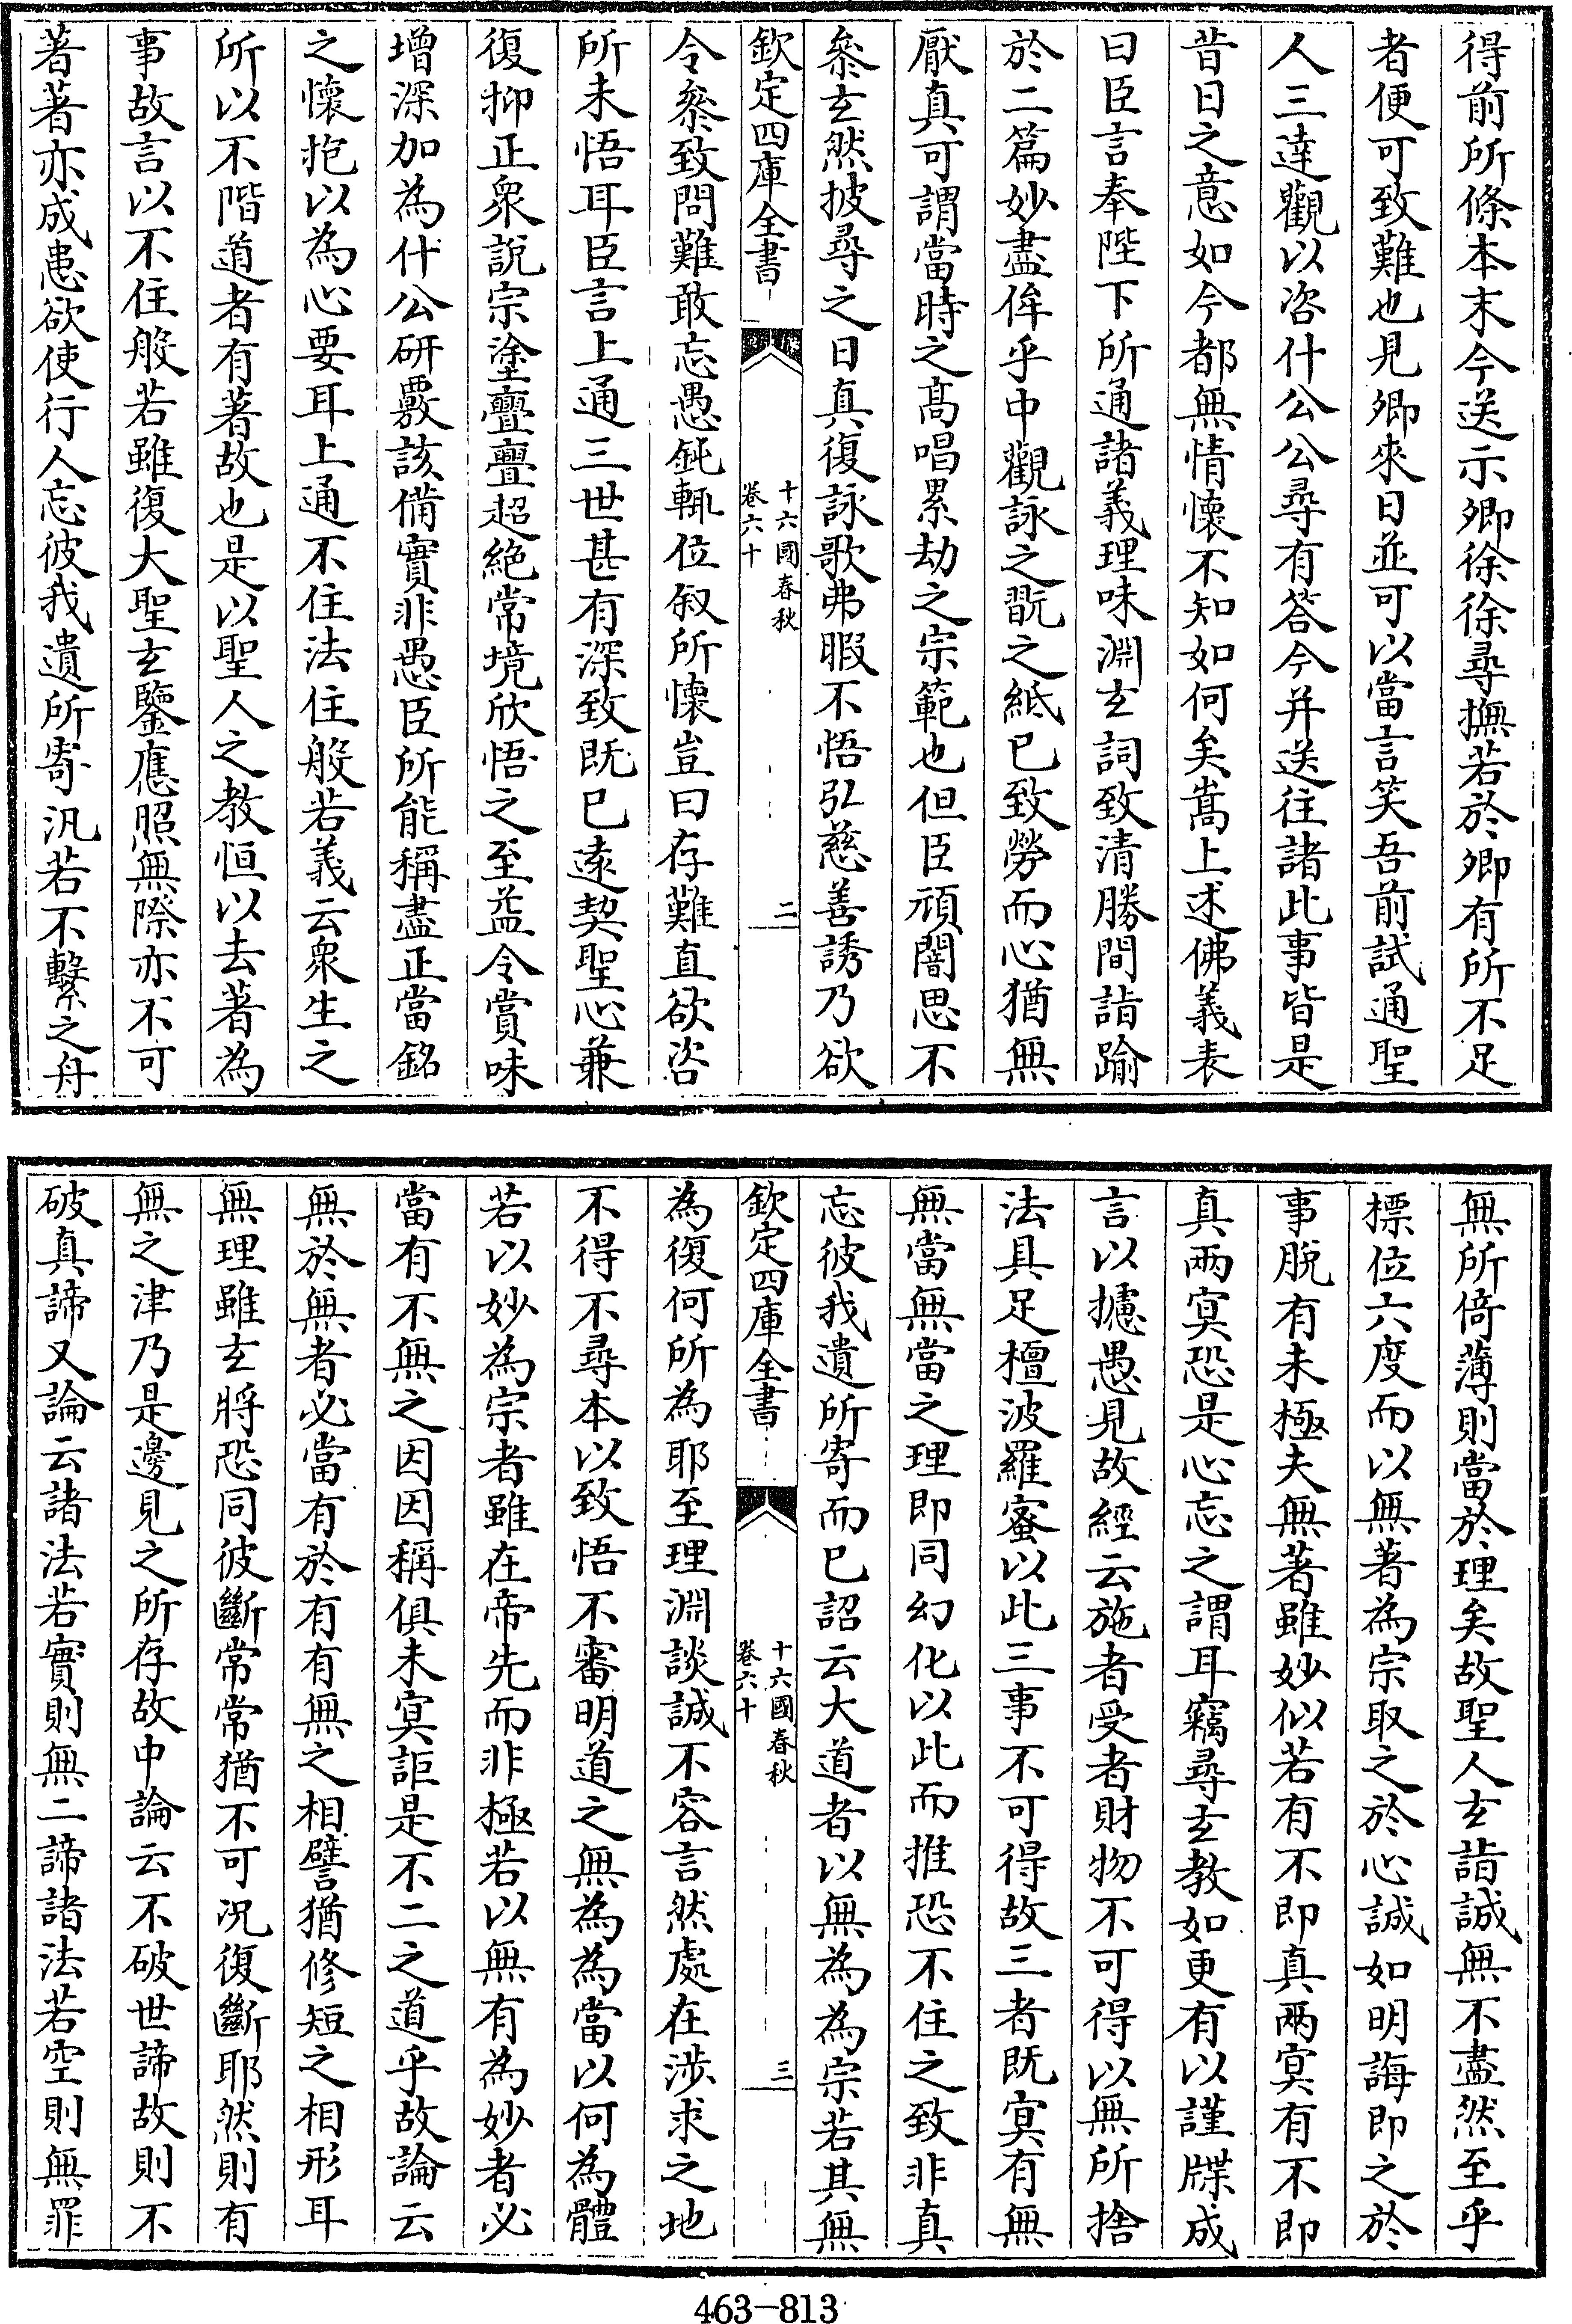 得前所條本末今送示卿徐徐尋撫若於卿有所不足
者便可致難也見卿來日並可以當言笑吾前試通聖
人三達觀以咨什公公尋有答今并送往諸此事皆是
昔日之意如今都無情懷不知如何矣嵩上述佛義表
曰臣言奉陛下所通諸義理味淵玄詞致清勝間詣踰
於二篇妙盡侔乎中觀詠之翫之紙已致勞而心猶無
厭真可謂當時之高唱累劫之宗範也但臣頑闇思不
叅玄然披尋之日真復詠歌弗暇不悟弘慈善誘乃欲
欽定四庫全書
十六國春秋
卷六十
二
令叅致問難敢忘愚鈍輒位叙所懷豈曰存難直欲咨
所未悟耳臣言上通三世甚有深致既已遠契聖心兼
復抑正衆說宗塗亹亹超絶常境欣悟之至益令賞味
增深加為什公研覈該備實非愚臣所能稱盡正當銘
之懷抱以為心要耳上通不住法住般若義云衆生之
所以不階道者有著故也是以聖人之教恒以去著為
事故言以不住般若雖復大聖玄鑒應照無際亦不可
著著亦成患欲使行人忘彼我遺所寄汎若不繫之舟
無所倚薄則當於理矣故聖人玄詣誠無不盡然至乎
標位六度而以無著為宗取之於心誠如明誨即之於
事脫有未極夫無著雖妙似若有不即真兩㝠有不即
真兩㝠恐是心忘之謂耳竊尋玄教如更有以謹牒成
言以攄愚見故經云施者受者財物不可得以無所捨
法具足檀波羅蜜以此三事不可得故三者既㝠有無
無當無當之理即同幻化以此而推恐不住之致非真
忘彼我遺所寄而已詔云大道者以無為為宗若其無
欽定四庫全書
十六國春秋
卷六十
三
為復何所為耶至理淵談誠不容言然處在涉求之地
不得不尋本以致悟不審明道之無為為當以何為體
若以妙為宗者雖在帝先而非極若以無有為妙者必
當有不無之因因稱俱未㝠詎是不二之道乎故論云
無於無者必當有於有有無之相譬猶修短之相形耳
無理雖玄將恐同彼斷常常猶不可況復斷耶然則有
無之津乃是邊見之所存故中論云不破世諦故則不
破真諦又論云諸法若實則無二諦諸法若空則無罪
463-813